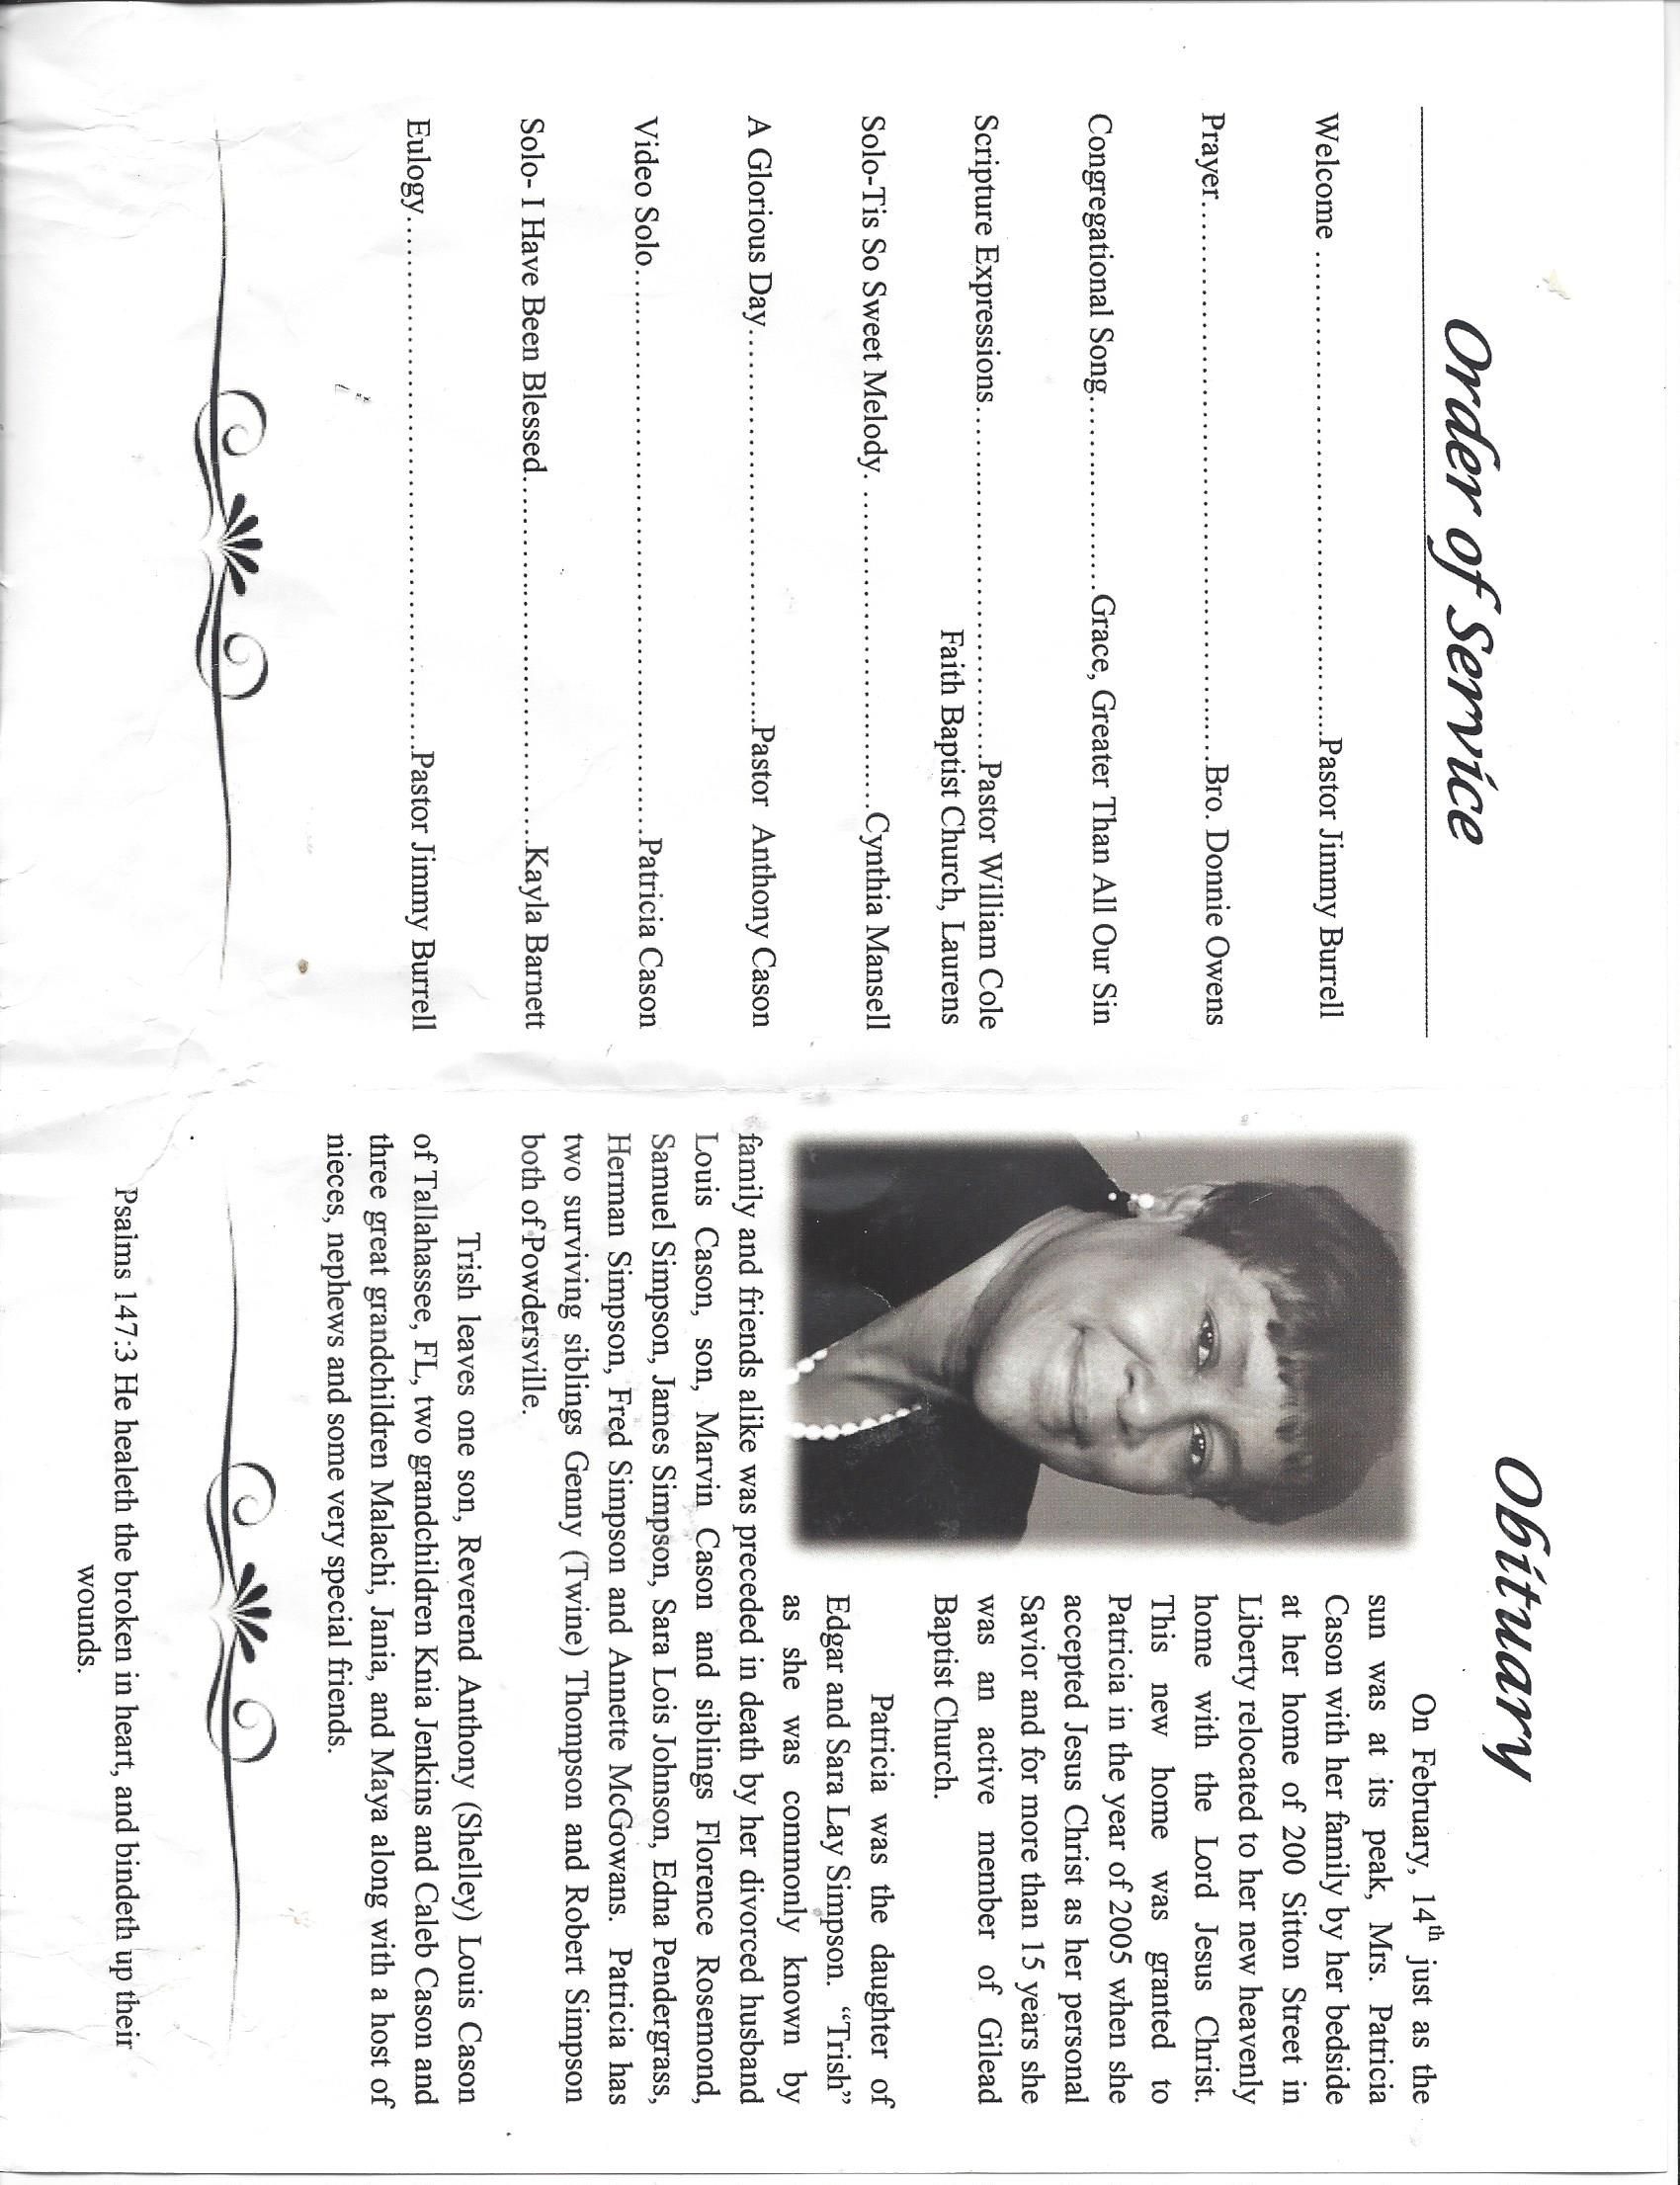 Order of Service
Welcome ……………………………………………Pastor Jimmy Burrell
Prayer……………………………………………………Bro. Donnie Owens
Congregational Song…………………Grace, Greater Than All Our Sin
Scripture Expressions………………………………Pastor William Cole
Faith Baptist Church, Laurens
Solo-Tis So Sweet Melody. ……………………………Cynthia Mansell
A Glorious Day……………………………………Pastor Anthony Cason
Video Solo……………………………………………………Patricia Cason
Solo- I Have Been Blessed…………………………………Kayla Barnett
Eulogy…………………………………………………Pastor Jimmy Burrell
Obituary
On February, 14th just as the
sun was at its peak, Mrs. Patricia
Cason with her family by her bedside
at her home of 200 Sitton Street in
Liberty relocated to her new heavenly
home with the Lord Jesus Christ.
This new home was granted to
Patricia in the year of 2005 when she
accepted Jesus Christ as her personal
Savior and for more than 15 years she
was an active member of Gilead
Baptist Church.
Patricia was the daughter of
Edgar and Sara Lay Simpson. “Trish”
as she was commonly known by
family and friends alike was preceded in death by her divorced husband
Louis Cason, son, Marvin Cason and siblings Florence Rosemond,
Samuel Simpson, James Simpson, Sara Lois Johnson, Edna Pendergrass,
Herman Simpson, Fred Simpson and Annette McGowans. Patricia has
two surviving siblings Genny (Twine) Thompson and Robert Simpson
both of Powdersville.
Trish leaves one son, Reverend Anthony (Shelley) Louis Cason
of Tallahassee, FL, two grandchildren Knia Jenkins and Caleb Cason and
three great grandchildren Malachi, Jania, and Maya along with a host of
nieces, nephews and some very special friends.
Psalms 147:3 He healeth the broken in heart, and bindeth up their
wounds.